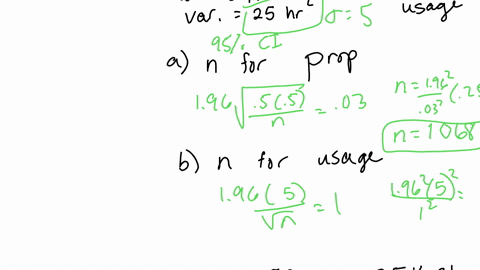 var. = 25 hr² σ = 5 usage
95% CI
a) n for prop
1.96 √(.5(.5)/n) = .03
n = 1.96²/.03² (.25
n = 1068
b) n for usage
1.96(5)/√n = 1
1.96²(5)²/1² =